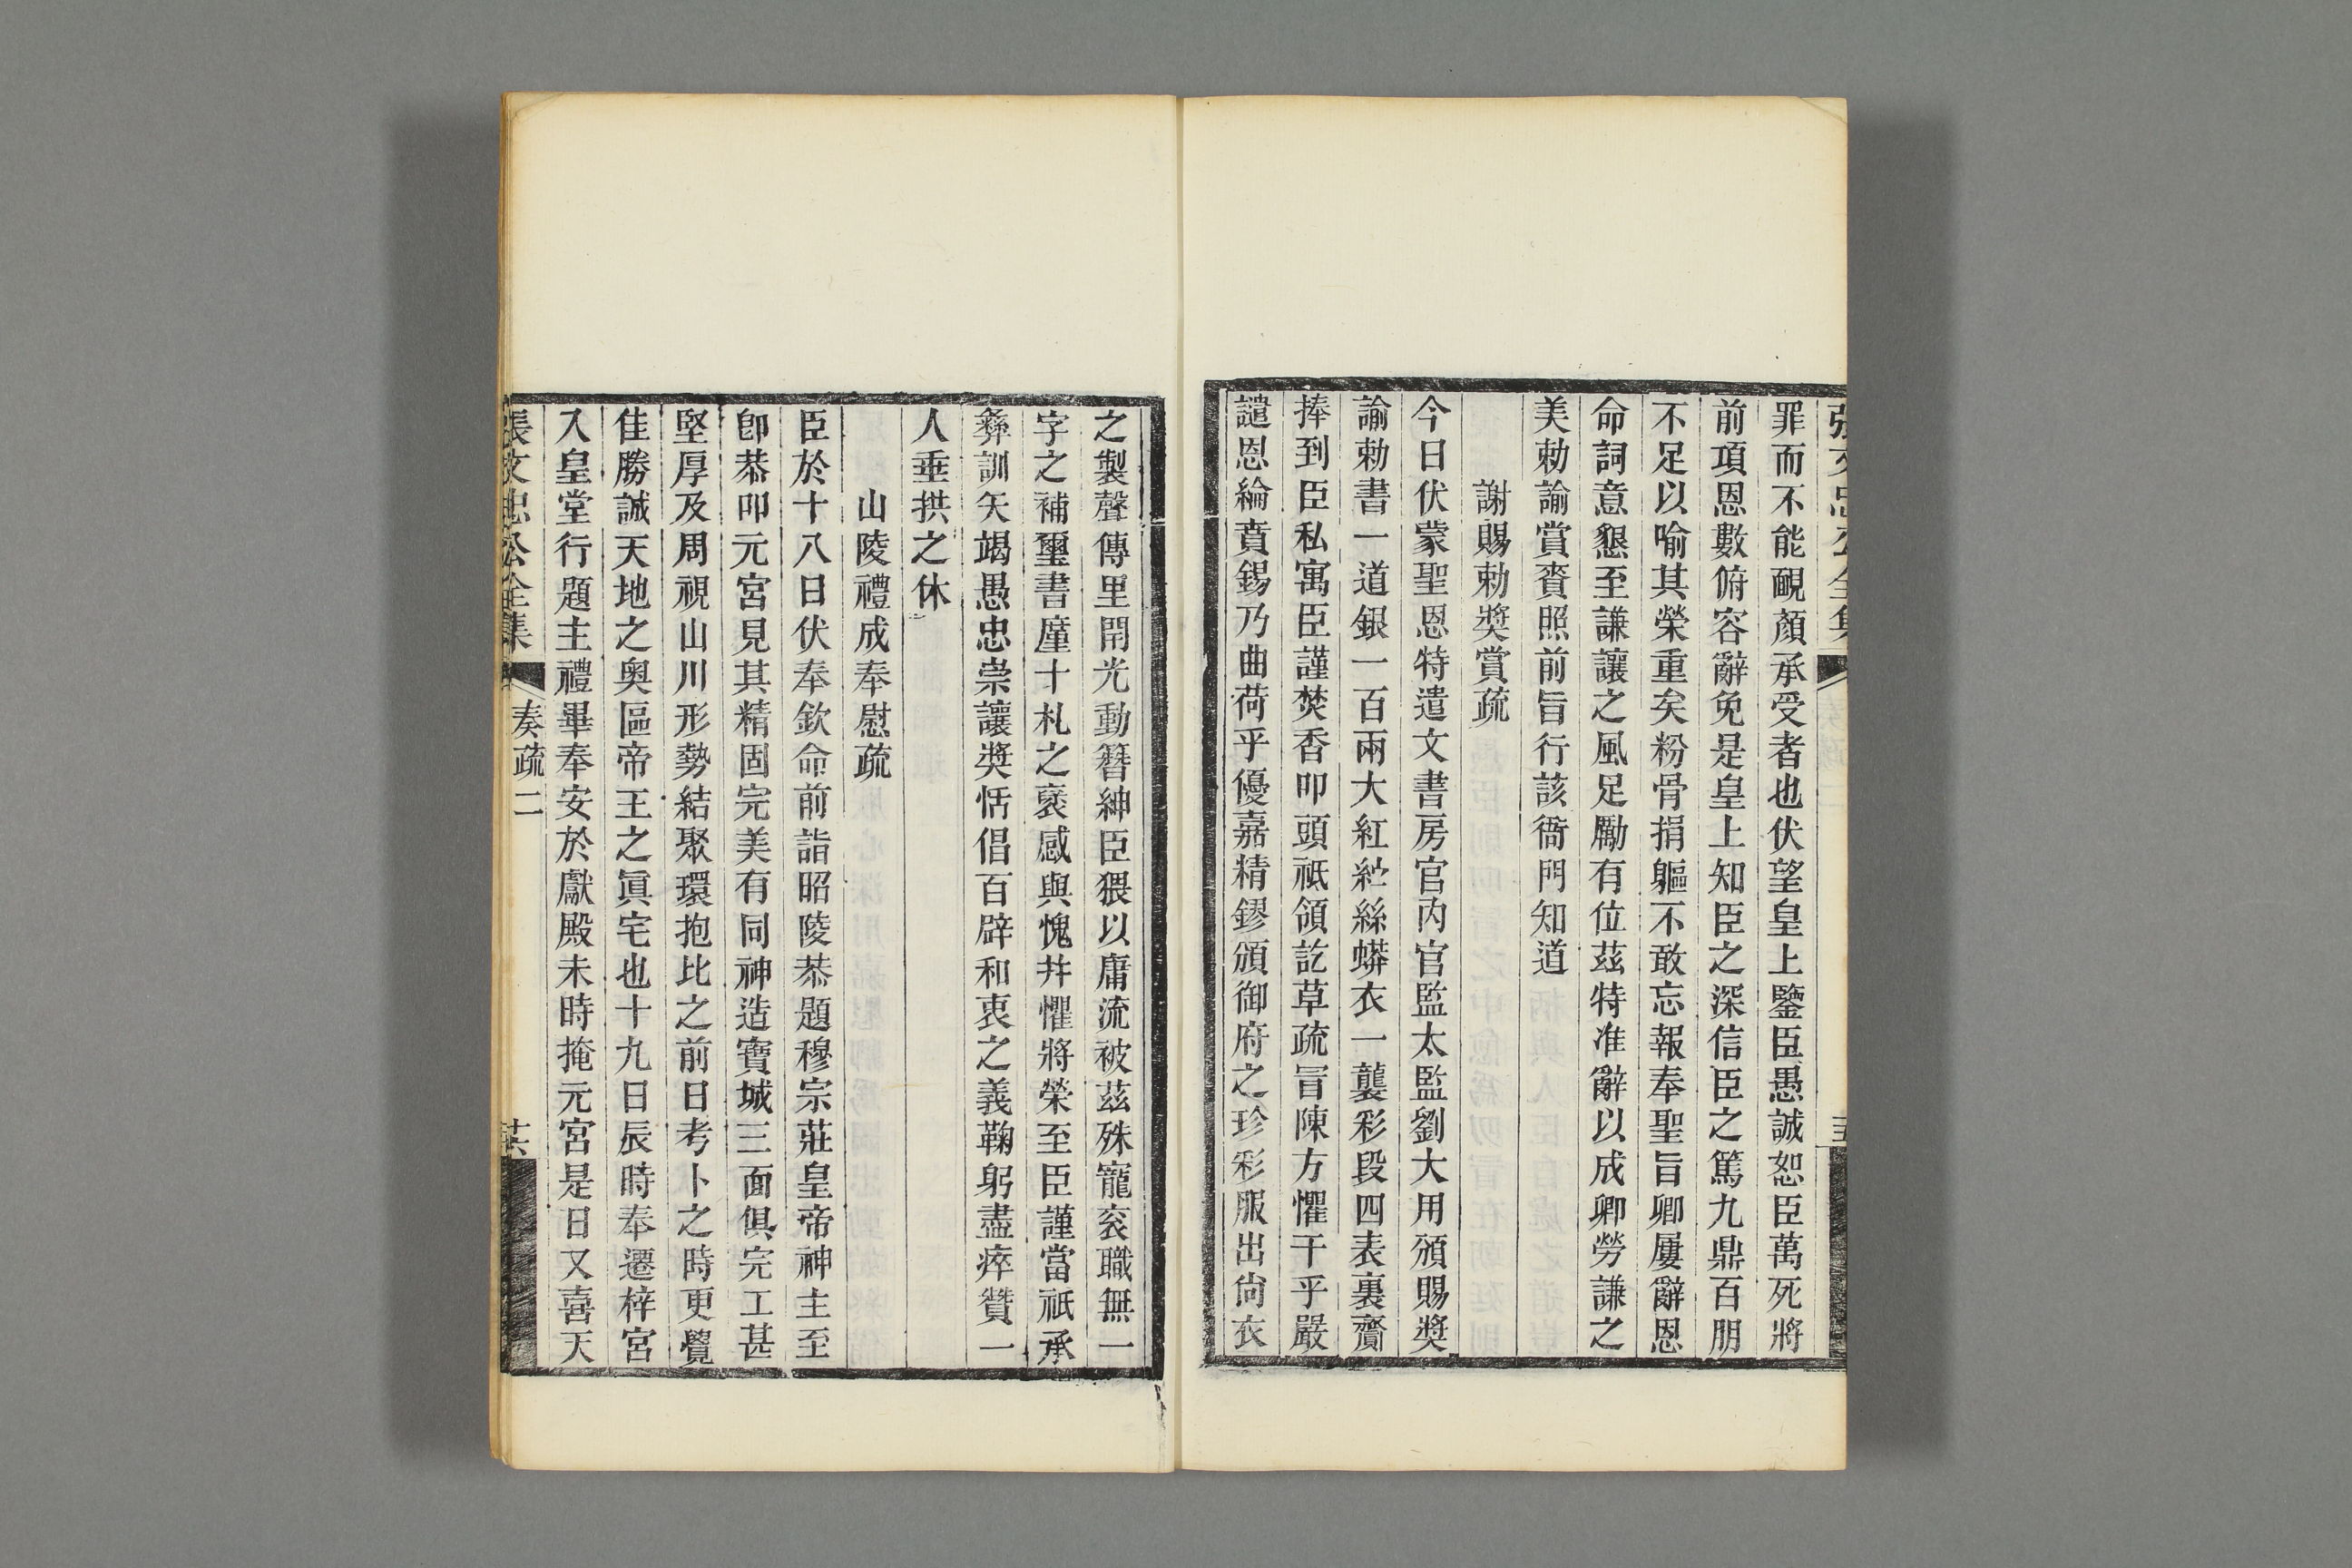 罪而不能靦顏承受者也伏望皇上鑒臣愚誠恕臣萬死將
前項恩數俯容辭免是皇上知臣之深信臣之篤九鼎百朋
不足以喻其榮重矣粉骨捐軀不敢忘報奉聖旨卿屢辭恩
命詞意懇至謙讓之風足勵有位茲特准辭以成卿勞謙之
美勅諭賞賚照前旨行該衙門知道
謝賜勅獎賞疏
今日伏蒙聖恩特遣文書房官內官監太監劉大用頒賜獎
諭勅書一道銀一百兩大紅紵絲蟒衣一襲彩段四表裏齎
捧到臣私寓臣謹焚香叩頭祗領訖草疏冒陳方懼干乎嚴
譴恩綸賁錫乃曲荷乎優嘉精鏐頒御府之珍彩服出尙衣
之製聲傳里閈光動簪紳臣猥以庸流被茲殊寵袞職無一
字之補璽書廑十札之褒感與愧幷懼將榮至臣謹當祇承
彝訓矢竭愚忠崇讓獎恬倡百辟和衷之義鞠躬盡瘁贊一
人垂拱之休
山陵禮成奉慰疏
臣於十八日伏奉欽命前詣昭陵恭題穆宗莊皇帝神主至
卽恭叩元宮見其精固完美有同神造寶城三面俱完工甚
堅厚及周視山川形勢結聚環抱比之前日考卜之時更覺
佳勝誠天地之奧區帝王之眞宅也十九日辰時奉遷梓宮
入皇堂行題主禮畢奉安於獻殿未時掩元宮是日又喜天
張文忠公全集 奏疏二 十六